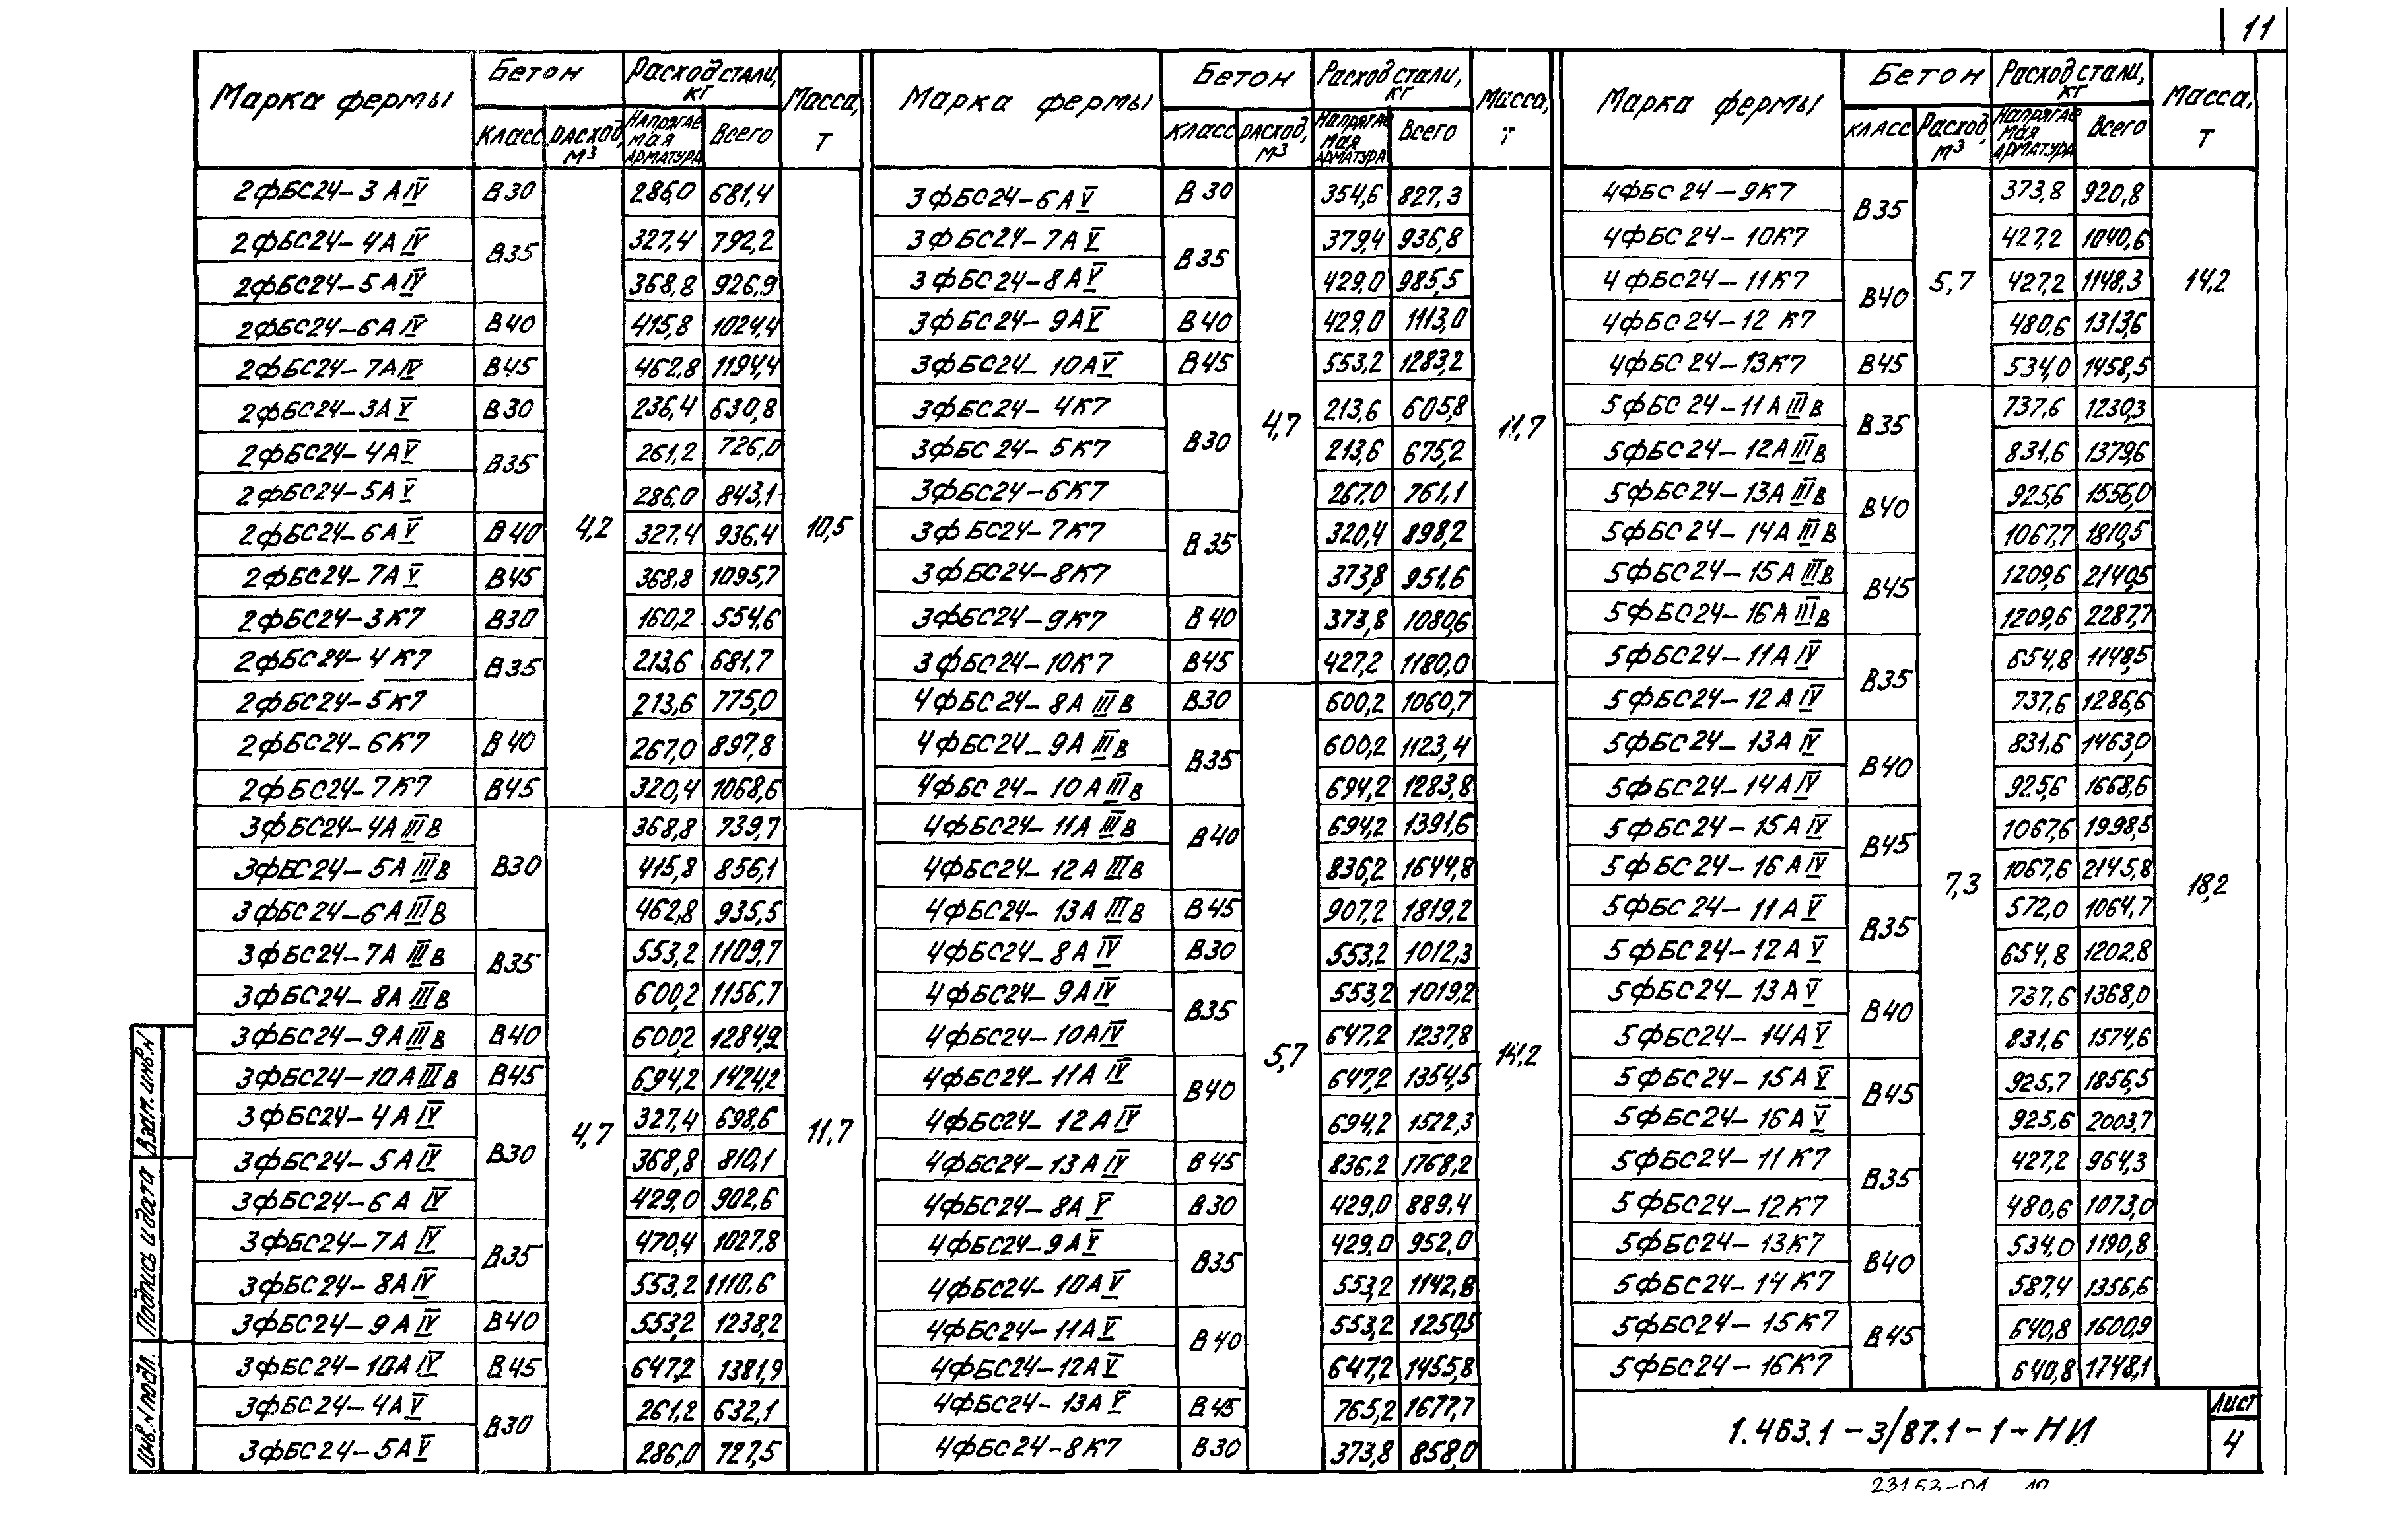 11
Марка фермы | Бетон | Расход стали, кг | Масса, т
класс | расход, м³ | Напрягаемая арматура | Всего
2ФБС24-3АIV | В30 | 4,2 | 286,0 | 681,4 | 10,5
2ФБС24-4АIV | В35 | 327,4 | 792,2
2ФБС24-5АIV | 368,8 | 926,9
2ФБС24-6АIV | В40 | 415,8 | 1024,4
2ФБС24-7АIV | В45 | 462,8 | 1194,4
2ФБС24-3АV | В30 | 236,4 | 630,8
2ФБС24-4АV | В35 | 261,2 | 726,0
2ФБС24-5АV | 286,0 | 843,1
2ФБС24-6АV | В40 | 327,4 | 936,4
2ФБС24-7АV | В45 | 368,8 | 1095,7
2ФБС24-3К7 | В30 | 160,2 | 554,6
2ФБС24-4К7 | В35 | 213,6 | 681,7
2ФБС24-5К7 | 213,6 | 775,0
2ФБС24-6К7 | В40 | 267,0 | 897,8
2ФБС24-7К7 | В45 | 320,4 | 1068,6
3ФБС24-4АIIIв | В30 | 4,7 | 368,8 | 739,7 | 11,7
3ФБС24-5АIIIв | 415,8 | 856,1
3ФБС24-6АIIIв | 462,8 | 935,5
3ФБС24-7АIIIв | В35 | 553,2 | 1109,7
3ФБС24-8АIIIв | 600,2 | 1156,7
3ФБС24-9АIIIв | В40 | 600,2 | 1284,2
3ФБС24-10АIIIв | В45 | 694,2 | 1424,2
3ФБС24-4АIV | В30 | 327,4 | 698,6
3ФБС24-5АIV | 368,8 | 810,1
3ФБС24-6АIV | 429,0 | 902,6
3ФБС24-7АIV | В35 | 470,4 | 1027,8
3ФБС24-8АIV | 553,2 | 1110,6
3ФБС24-9АIV | В40 | 553,2 | 1238,2
3ФБС24-10АIV | В45 | 647,2 | 1381,9
3ФБС24-4АV | В30 | 261,2 | 632,1
3ФБС24-5АV | 286,0 | 727,5
Марка фермы | Бетон | Расход стали, кг | Масса, т
класс | расход, м³ | Напрягаемая арматура | Всего
3ФБС24-6АV | В30 | 4,7 | 354,6 | 827,3 | 11,7
3ФБС24-7АV | В35 | 379,4 | 936,8
3ФБС24-8АV | 429,0 | 985,5
3ФБС24-9АV | В40 | 429,0 | 1113,0
3ФБС24-10АV | В45 | 553,2 | 1283,2
3ФБС24-4К7 | В30 | 213,6 | 605,8
3ФБС24-5К7 | 213,6 | 675,2
3ФБС24-6К7 | 267,0 | 761,1
3ФБС24-7К7 | В35 | 320,4 | 898,2
3ФБС24-8К7 | 373,8 | 951,6
3ФБС24-9К7 | В40 | 373,8 | 1080,6
3ФБС24-10К7 | В45 | 427,2 | 1180,0
4ФБС24-8АIIIв | В30 | 5,7 | 600,2 | 1060,7 | 14,2
4ФБС24-9АIIIв | В35 | 600,2 | 1123,4
4ФБС24-10АIIIв | 694,2 | 1283,8
4ФБС24-11АIIIв | В40 | 694,2 | 1391,6
4ФБС24-12АIIIв | 836,2 | 1644,8
4ФБС24-13АIIIв | В45 | 907,2 | 1819,2
4ФБС24-8АIV | В30 | 553,2 | 1012,3
4ФБС24-9АIV | В35 | 553,2 | 1019,2
4ФБС24-10АIV | 647,2 | 1237,8
4ФБС24-11АIV | В40 | 647,2 | 1354,5
4ФБС24-12АIV | 694,2 | 1522,3
4ФБС24-13АIV | В45 | 836,2 | 1768,2
4ФБС24-8АV | В30 | 429,0 | 889,4
4ФБС24-9АV | В35 | 429,0 | 952,0
4ФБС24-10АV | 553,2 | 1142,8
4ФБС24-11АV | В40 | 553,2 | 1250,5
4ФБС24-12АV | 647,2 | 1455,8
4ФБС24-13АV | В45 | 765,2 | 1677,7
4ФБС24-8К7 | В30 | 373,8 | 858,0
Марка фермы | Бетон | Расход стали, кг | Масса, т
класс | Расход, м³ | Напрягаемая арматура | Всего
4ФБС24-9К7 | В35 | 5,7 | 373,8 | 920,8 | 14,2
4ФБС24-10К7 | 427,2 | 1040,6
4ФБС24-11К7 | В40 | 427,2 | 1148,3
4ФБС24-12К7 | 480,6 | 1313,6
4ФБС24-13К7 | В45 | 534,0 | 1458,5
5ФБС24-11АIIIв | В35 | 7,3 | 737,6 | 1230,3 | 18,2
5ФБС24-12АIIIв | 831,6 | 1379,6
5ФБС24-13АIIIв | В40 | 925,6 | 1556,0
5ФБС24-14АIIIв | 1067,7 | 1810,5
5ФБС24-15АIIIв | В45 | 1209,6 | 2140,5
5ФБС24-16АIIIв | 1209,6 | 2287,7
5ФБС24-11АIV | В35 | 654,8 | 1148,5
5ФБС24-12АIV | 737,6 | 1286,6
5ФБС24-13АIV | В40 | 831,6 | 1463,0
5ФБС24-14АIV | 925,6 | 1668,6
5ФБС24-15АIV | В45 | 1067,6 | 1998,5
5ФБС24-16АIV | 1067,6 | 2145,8
5ФБС24-11АV | В35 | 572,0 | 1064,7
5ФБС24-12АV | 654,8 | 1202,8
5ФБС24-13АV | В40 | 737,6 | 1368,0
5ФБС24-14АV | 831,6 | 1574,6
5ФБС24-15АV | В45 | 925,7 | 1856,5
5ФБС24-16АV | 925,6 | 2003,7
5ФБС24-11К7 | В35 | 427,2 | 964,3
5ФБС24-12К7 | 480,6 | 1073,0
5ФБС24-13К7 | В40 | 534,0 | 1190,8
5ФБС24-14К7 | 587,4 | 1356,6
5ФБС24-15К7 | В45 | 640,8 | 1600,9
5ФБС24-16К7 | 640,8 | 1748,1
1.463.1-3/87.1-1-НИ
Лист
4
Взам. инв. N
Подпись и дата
Инв. N подл.
23153-01 10